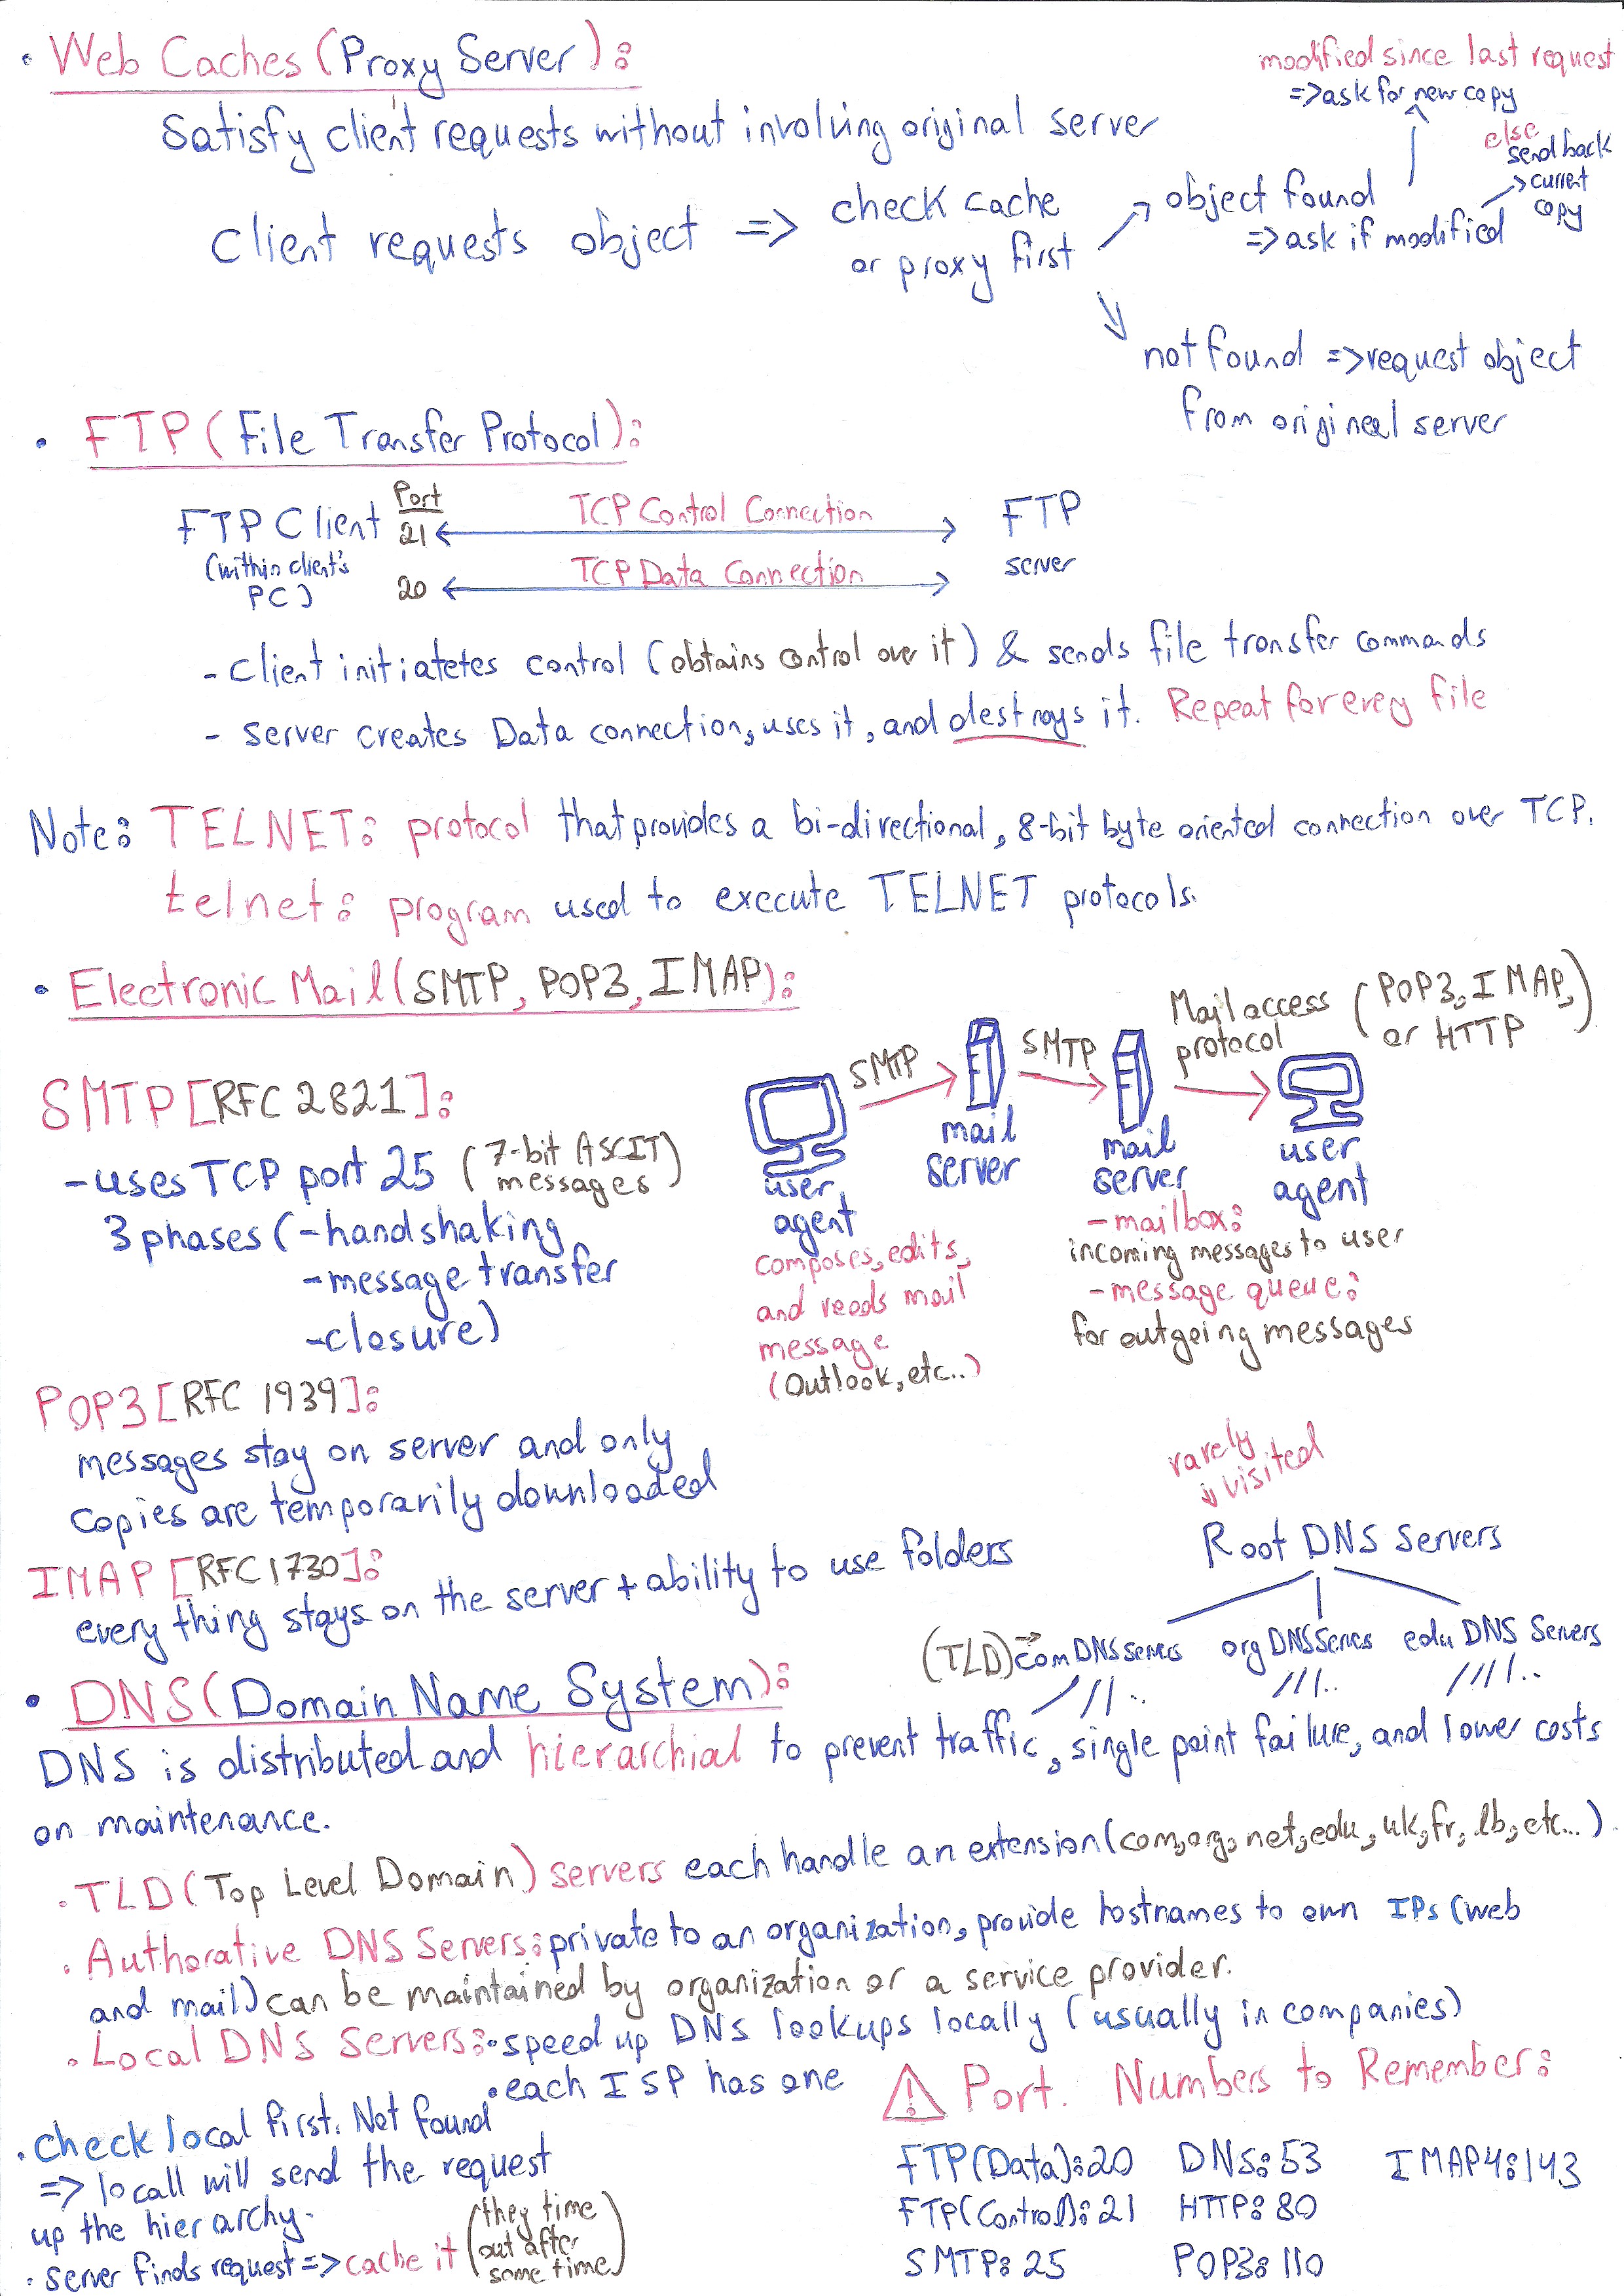 • Web Caches (Proxy Server):
Satisfy client requests without involving original server
modified since last request
=> ask for new copy
else
send back
current
copy
client requests object => check cache
or proxy first
object found
=> ask if modified
not found => request object
from origineal server
• FTP (File Transfer Protocol):
FTP Client
(within client's
PC)
Port
21
20
TCP Control Connection
TCP Data Connection
FTP
server
- client initiatetes control (obtains control over it) & sends file transfer commands
- server creates Data connection, uses it, and destroys it. Repeat for every file
Note: TELNET: protocol that provides a bi-directional, 8-bit byte oriented connection over TCP.
telnet: program used to execute TELNET protocols.
• Electronic Mail (SMTP, POP3, IMAP):
SMTP [RFC 2821]:
- uses TCP port 25 (7-bit ASCII
messages)
3 phases (- handshaking
- message transfer
- closure)
SMTP
SMTP
Mail access
protocol
(POP3, IMAP,
or HTTP)
user
agent
mail
server
mail
server
user
agent
composes, edits,
and reads mail
message
(Outlook, etc..)
- mailbox:
incoming messages to user
- message queue:
for outgoing messages
POP3 [RFC 1939]:
messages stay on server and only
copies are temporarily downloaded
IMAP [RFC 1730]:
every thing stays on the server + ability to use folders
rarely
visited
Root DNS Servers
(TLD) => com DNS servers org DNS servers edu DNS Servers
• DNS (Domain Name System):
DNS is distributed and hierarchial to prevent traffic, single point failure, and lower costs
on maintenance.
• TLD (Top Level Domain) servers each handle an extension (com, org, net, edu, uk, fr, lb, etc...).
• Authorative DNS Servers: private to an organization, provide hostnames to own IPs (web
and mail) can be maintained by organization or a service provider.
• Local DNS Servers: • speed up DNS lookups locally (usually in companies)
• each ISP has one
• check local first. Not found
=> locall will send the request
up the hierarchy.
• server finds request => cache it (they time
out after
some time)
⚠ Port. Numbers to Remember:
FTP (Data): 20 DNS: 53 IMAP4: 143
FTP (Control): 21 HTTP: 80
SMTP: 25 POP3: 110